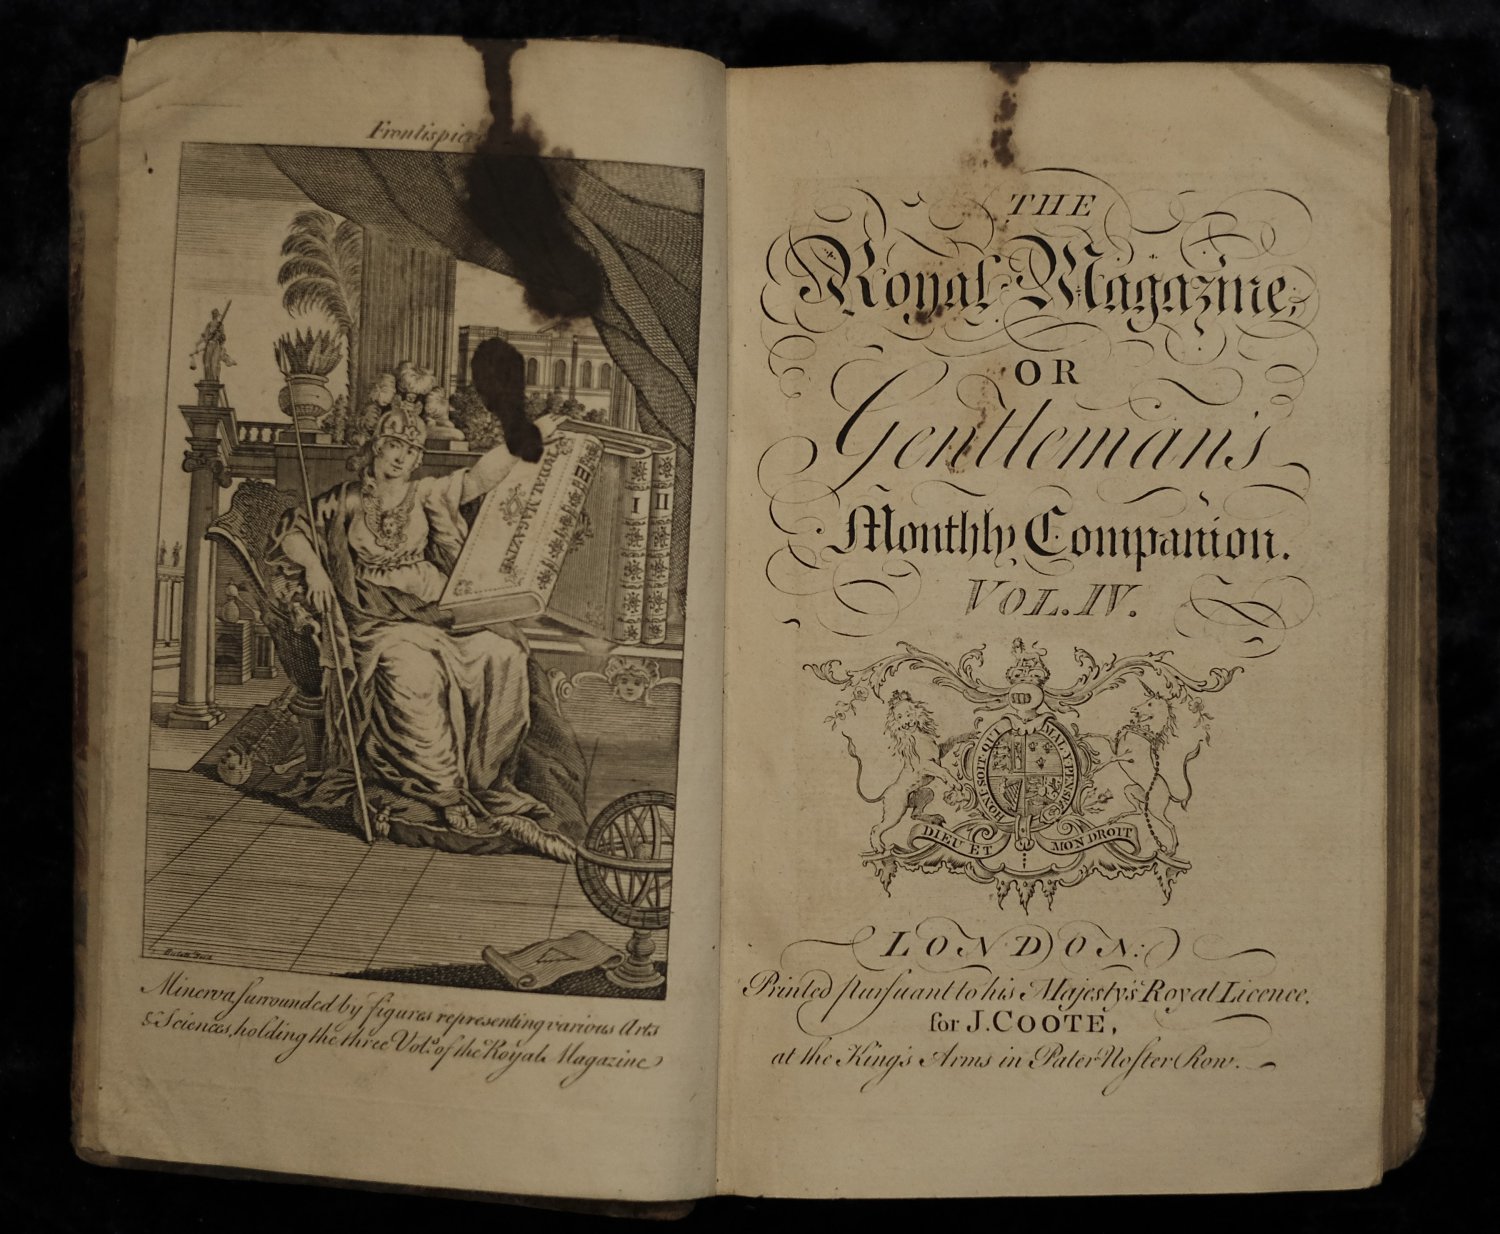 Frontispiece
ROYAL MAGAZINE
III
I
II
Minerva surrounded by figures representing various Arts
& Sciences, holding the three Vols. of the Royal Magazine
THE
Royal Magazine,
OR
Gentleman's
Monthly Companion.
VOL. IV.
HONI SOIT QUI MAL Y PENSE
DIEU ET MON DROIT
LONDON:
Printed pursuant to his Majesty's Royal Licence,
for J. COOTE,
at the King's Arms in Pater Noster Row.